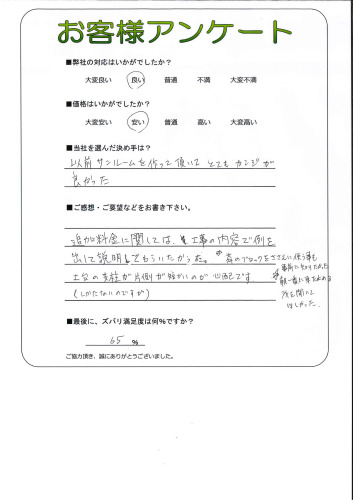 お客様アンケート
■弊社の対応はいかがでしたか？
大変良い 良い 普通 不満 大変不満
■価格はいかがでしたか？
大変安い 安い 普通 高い 大変高い
■当社を選んだ決め手は？
以前サンルームを作って頂いて とてもカンジが
良かった
■ご感想・ご要望などをお書き下さい。
追加料金に関しては、工事の内容で例を
出して説明してもらいたかった。
家のブロックをささえに使う事も
事前に知りたかった
土台の支柱が片側が短かいのが心配です
(しかたないのですが)
車を止める
所を聞いて
ほしかった。
■最後に、ズバリ満足度は何%ですか？
65 %
ご協力頂き、誠にありがとうございました。